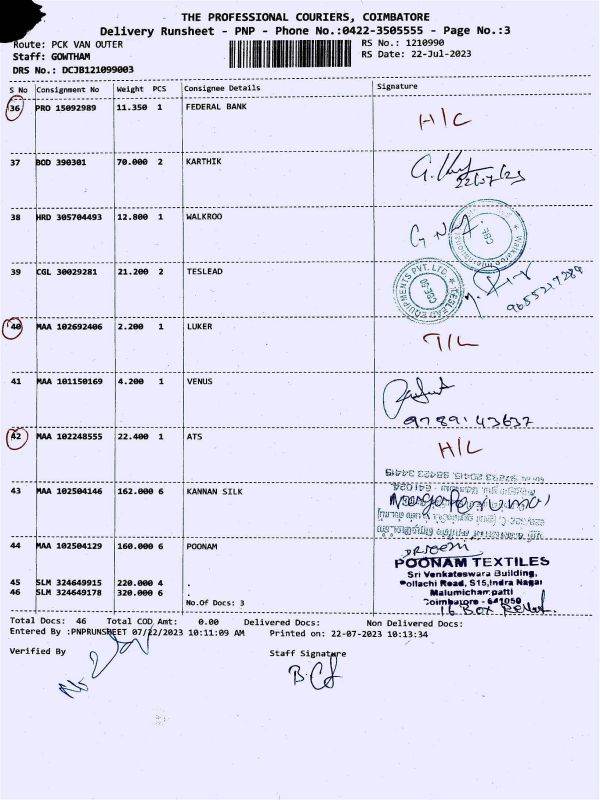 THE PROFESSIONAL COURIERS, COIMBATORE
Delivery Runsheet - PNP - Phone No.:0422-3505555 - Page No.:3
Route: PCK VAN OUTER RS No.: 1210990
Staff: GOWTHAM RS Date: 22-Jul-2023
DRS No.: DCJB121099003
S No Consignment No Weight PCS Consignee Details Signature
36 PRO 15092989 11.350 1 FEDERAL BANK H/C
37 BOD 390301 70.000 2 KARTHIK
22/07/23
38 HRD 305704493 12.800 1 WALKROO
CBE
39 CGL 30029281 21.200 2 TESLEAD
TESLEAD EQUIPMENTS PVT. LTD.
9655217289
40 MAA 102692406 2.200 1 LUKER T/L
41 MAA 101150169 4.200 1 VENUS
9789143637
42 MAA 102248555 22.400 1 ATS H/L
43 MAA 102504146 162.000 6 KANNAN SILK
44 MAA 102504129 160.000 6 POONAM
POONAM TEXTILES
Sri Venkateswara Building,
Pollachi Road, S15,Indra Nagar
Malumichampatti
Coimbatore - 641050
16 Box
45 SLM 324649915 220.000 4 .
46 SLM 324649178 320.000 6 .
No.Of Docs: 3
Total Docs: 46 Total COD Amt: 0.00 Delivered Docs: Non Delivered Docs:
Entered By :PNPRUNSHEET 07/22/2023 10:11:09 AM Printed on: 22-07-2023 10:13:34
Verified By Staff Signature